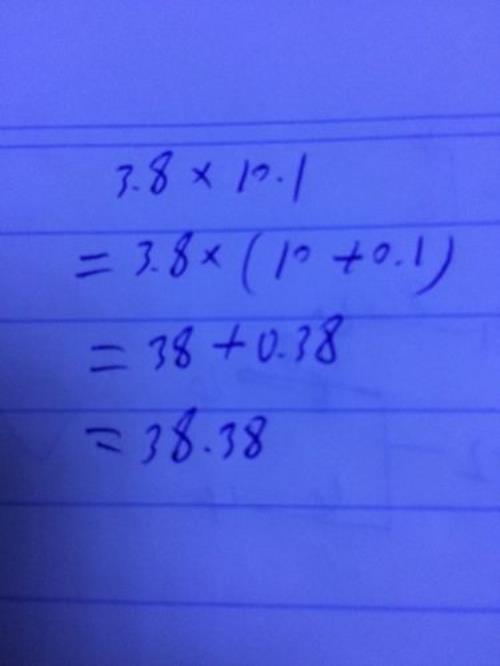 3.8 × 10.1
= 3.8 × (10 + 0.1)
= 38 + 0.38
= 38.38